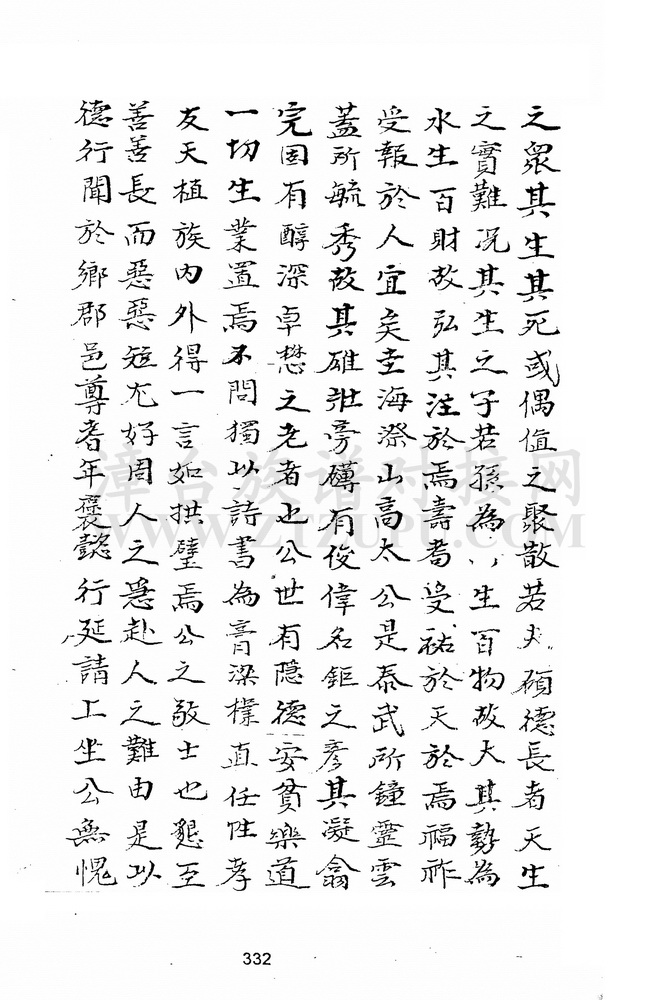 之眾其生其死或偶值之聚散若夫碩德長者天生
之實難况其生之子若孫為山生百物故大其勢為
水生百財故弘其注於焉壽耇受祐於天於焉福祚
受報於人宜矣圭海漈山高太公是泰武所鐘靈雲
蓋所毓秀故其雄壯旁礴有俊偉名鉅之彥其凝翕
完固有醇深卓懋之老者也公世有隐德安貧樂道
一切生業置焉不問獨以詩書為膏梁樸直任性孝
友天植族内外得一言如拱璧焉公之敬士也懇至
善善長而惡惡短尤好周人之急赴人之難由是以
德行聞於鄉郡邑尊耆年褒懿行延請上坐公無愧
漳台族谱对接网
WWW.ZTZUPU.COM
332